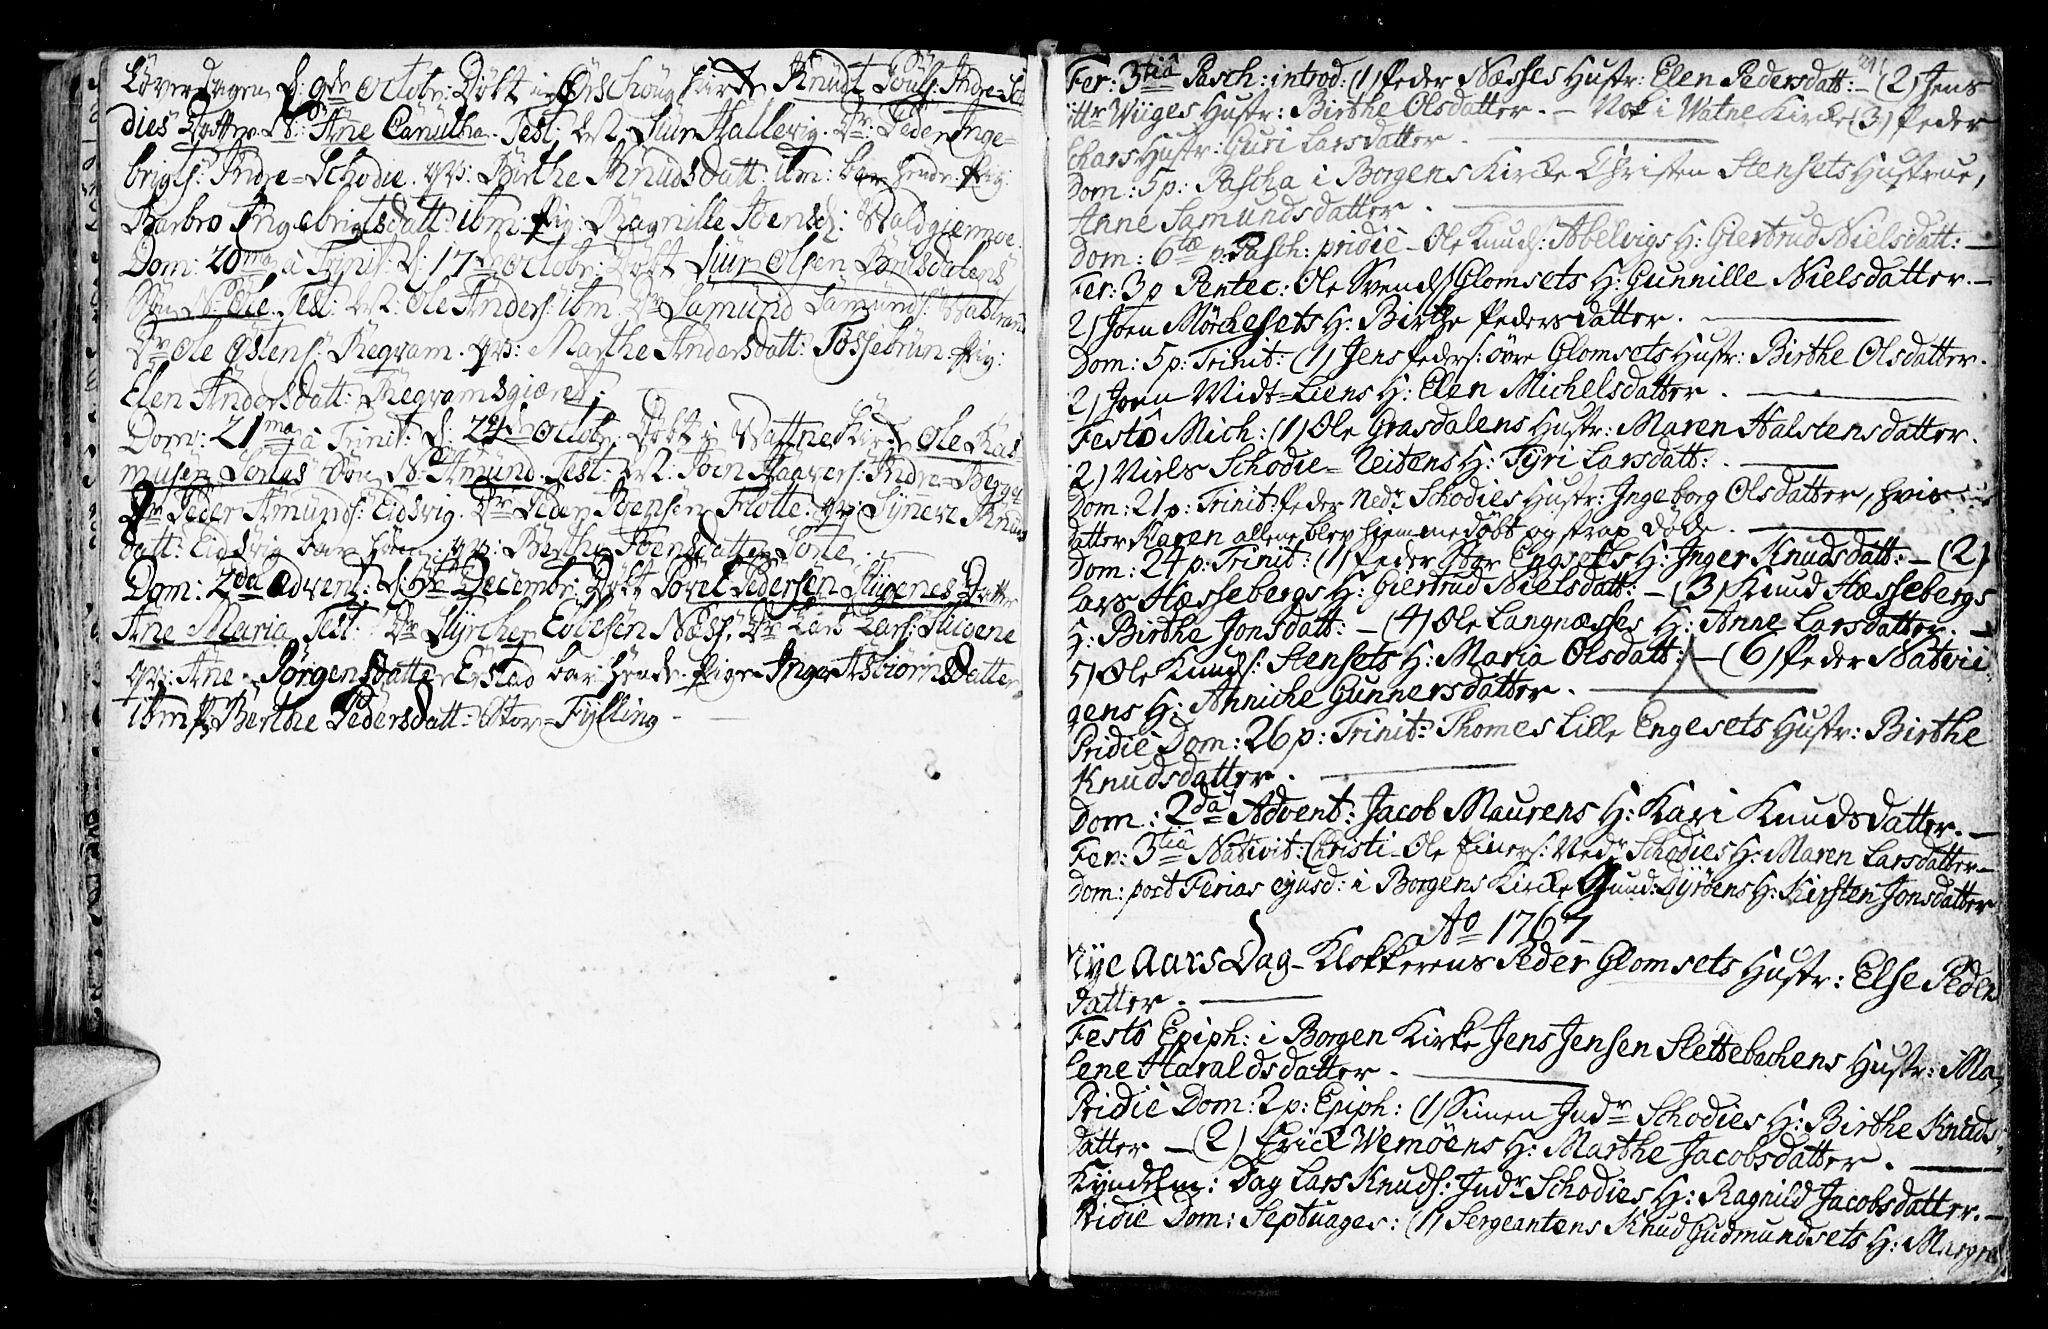 Løverdagen d: 9de Octobr: Døbt i Ørschoug Kirke Knudt Pouls: Indre=Scho
dies Dotter N: Ane Canutha. Test: Mr: Siur Hallevig. Dr: Peder Inge=
brigts: Indre=Schodie. qv: Birthe Knudsdatt: ibm: bar hende. Pig:
Barbro Ingebrigtsdatt: ibm: Pig: Ragnille Joensd:
Dom: 20ma à Trinit: d: 17de Octobr: Døbt Siur Olsen Brusdalens
Søn N: Ole. Test: Mr: Ole Anders: ibm. Dr Samund Samunds:
Dr Ole Østens: Regvam. qv: Marthe Andersdatt: Fossebrun. Pig:
Elen Andersdatt: Regvamsgiæret.
Dom: 21ma à Trinit: d: 24de Octobr: Døbt i Vattne Kirke Ole Ras=
musen Lortes Søn N: Amund. Test: Mr: Joen Haavers: Indre=
Dr Peder Amunds: Eidsvig. Dr: Peder Joensen Flotte. qv: Synneve Knuds
datt: Eidsvig bar ham. qv: Birthe Joensdatter Lorte.
Dom: 2da Advent: d: 5te Decembr: Døbt Povel Pedersen Stigenes Dotter
Ane Maria Test: Dr Styrcher Næss. Dr Lars Lars: Stigene
qv: Ane Jørgensdatter Erstad bar hende. Pigen Inger Asbiørnsdatter
ibm P: Berthe Pedersdatt: Stor=Fylling
Fer: 3tia Pasch: introd: (1) Peder Næsses Hustr: Elen Pedersdatt: - (2) Jens
Wiiges Hustr: Birthe Olsdatter. - Nok i Watne Kircke (3) Peder
Hustr: Guri Larsdatter.
Dom: 5 p: Pascha i Borgens Kircke Christen Stensets Hustrue,
Anne Samundsdatter.
Dom: 6tæ p: Pasch: pridie - Ole Knuds: Abelvigs H: Giertrud Nielsdatt: -
Fer: 3 p Pentec: Ole Svends: Glomsets H: Gunnille Nielsdatter. -
2) Joen Mørchesets H: Birthe Pedersdatter.
Dom: 5 p: Trinit: (1) Jens Peders: øvre Glomsets Hustr: Birthe Olsdatter.
2) Joen Midt=Liens H: Elen Michelsdatter.
Festô Mich: (1) Ole Grasdalens Hustr: Maren Halstensdatter.
2) Niels Schodie=Reitens H: Syri Larsdatt:
Dom: 21 p: Trinit: Peder Nedr: Schodies Hustr: Ingeborg Olsdatter, hvis
datter Karen allene blev hiemmedøbt og strax døde.
Dom: 24 p: Trinit: (1) Peder Stor Engsets H: Inger Knudsdatt: - (2)
Lars Hæssebergs H: Giertrud Nielsdatt: - (3) Knud Hæssebergs
H: Birthe Jonsdatt: - (4) Ole Langnæsses H: Anne Larsdatter. -
5) Ole Knuds: Stensets H: Maria Olsdatt: - (6) Peder Natvii
gens H: Anniche Gunnersdatter.
Pridiè Dom: 26 p: Trinit: Thomes Lille Engesets Hustr: Birthe
Knudsdatter.
Dom: 2da Advent: Jacob Maurens H: Kari Knudsdatter. -
Fer: 3tiâ Nativit: Christi - Ole Einers: Nedr Schodies H: Maren Larsdatter -
Dom: post Ferias ejusd: i Borgens Kircke Gund: Dyrøens H: Kirsten Jonsdatter
Ao 1767
Nye Aars Dag - Klokkerens Peder Glomsets Hustr: Else Peders
datter.
Festô Epiph: i Borgen Kirke Jens Jensen Slettebachens Hustr: Ma=
lene Haraldsdatter.
Pridiè Dom: 2 p: Epiph: (1) Simen Indr Schodies H: Birthe Knuds
datter - (2) Erick Wemøens H: Marthe Jacobsdatter.
Kyndelm: Dag Lars Knuds: Indr Schodies H: Ragnild Jacobsdatter. -
Pridiè Dom: Septuages: (1) Sergeantens Knud Gudmundsets H: Margre